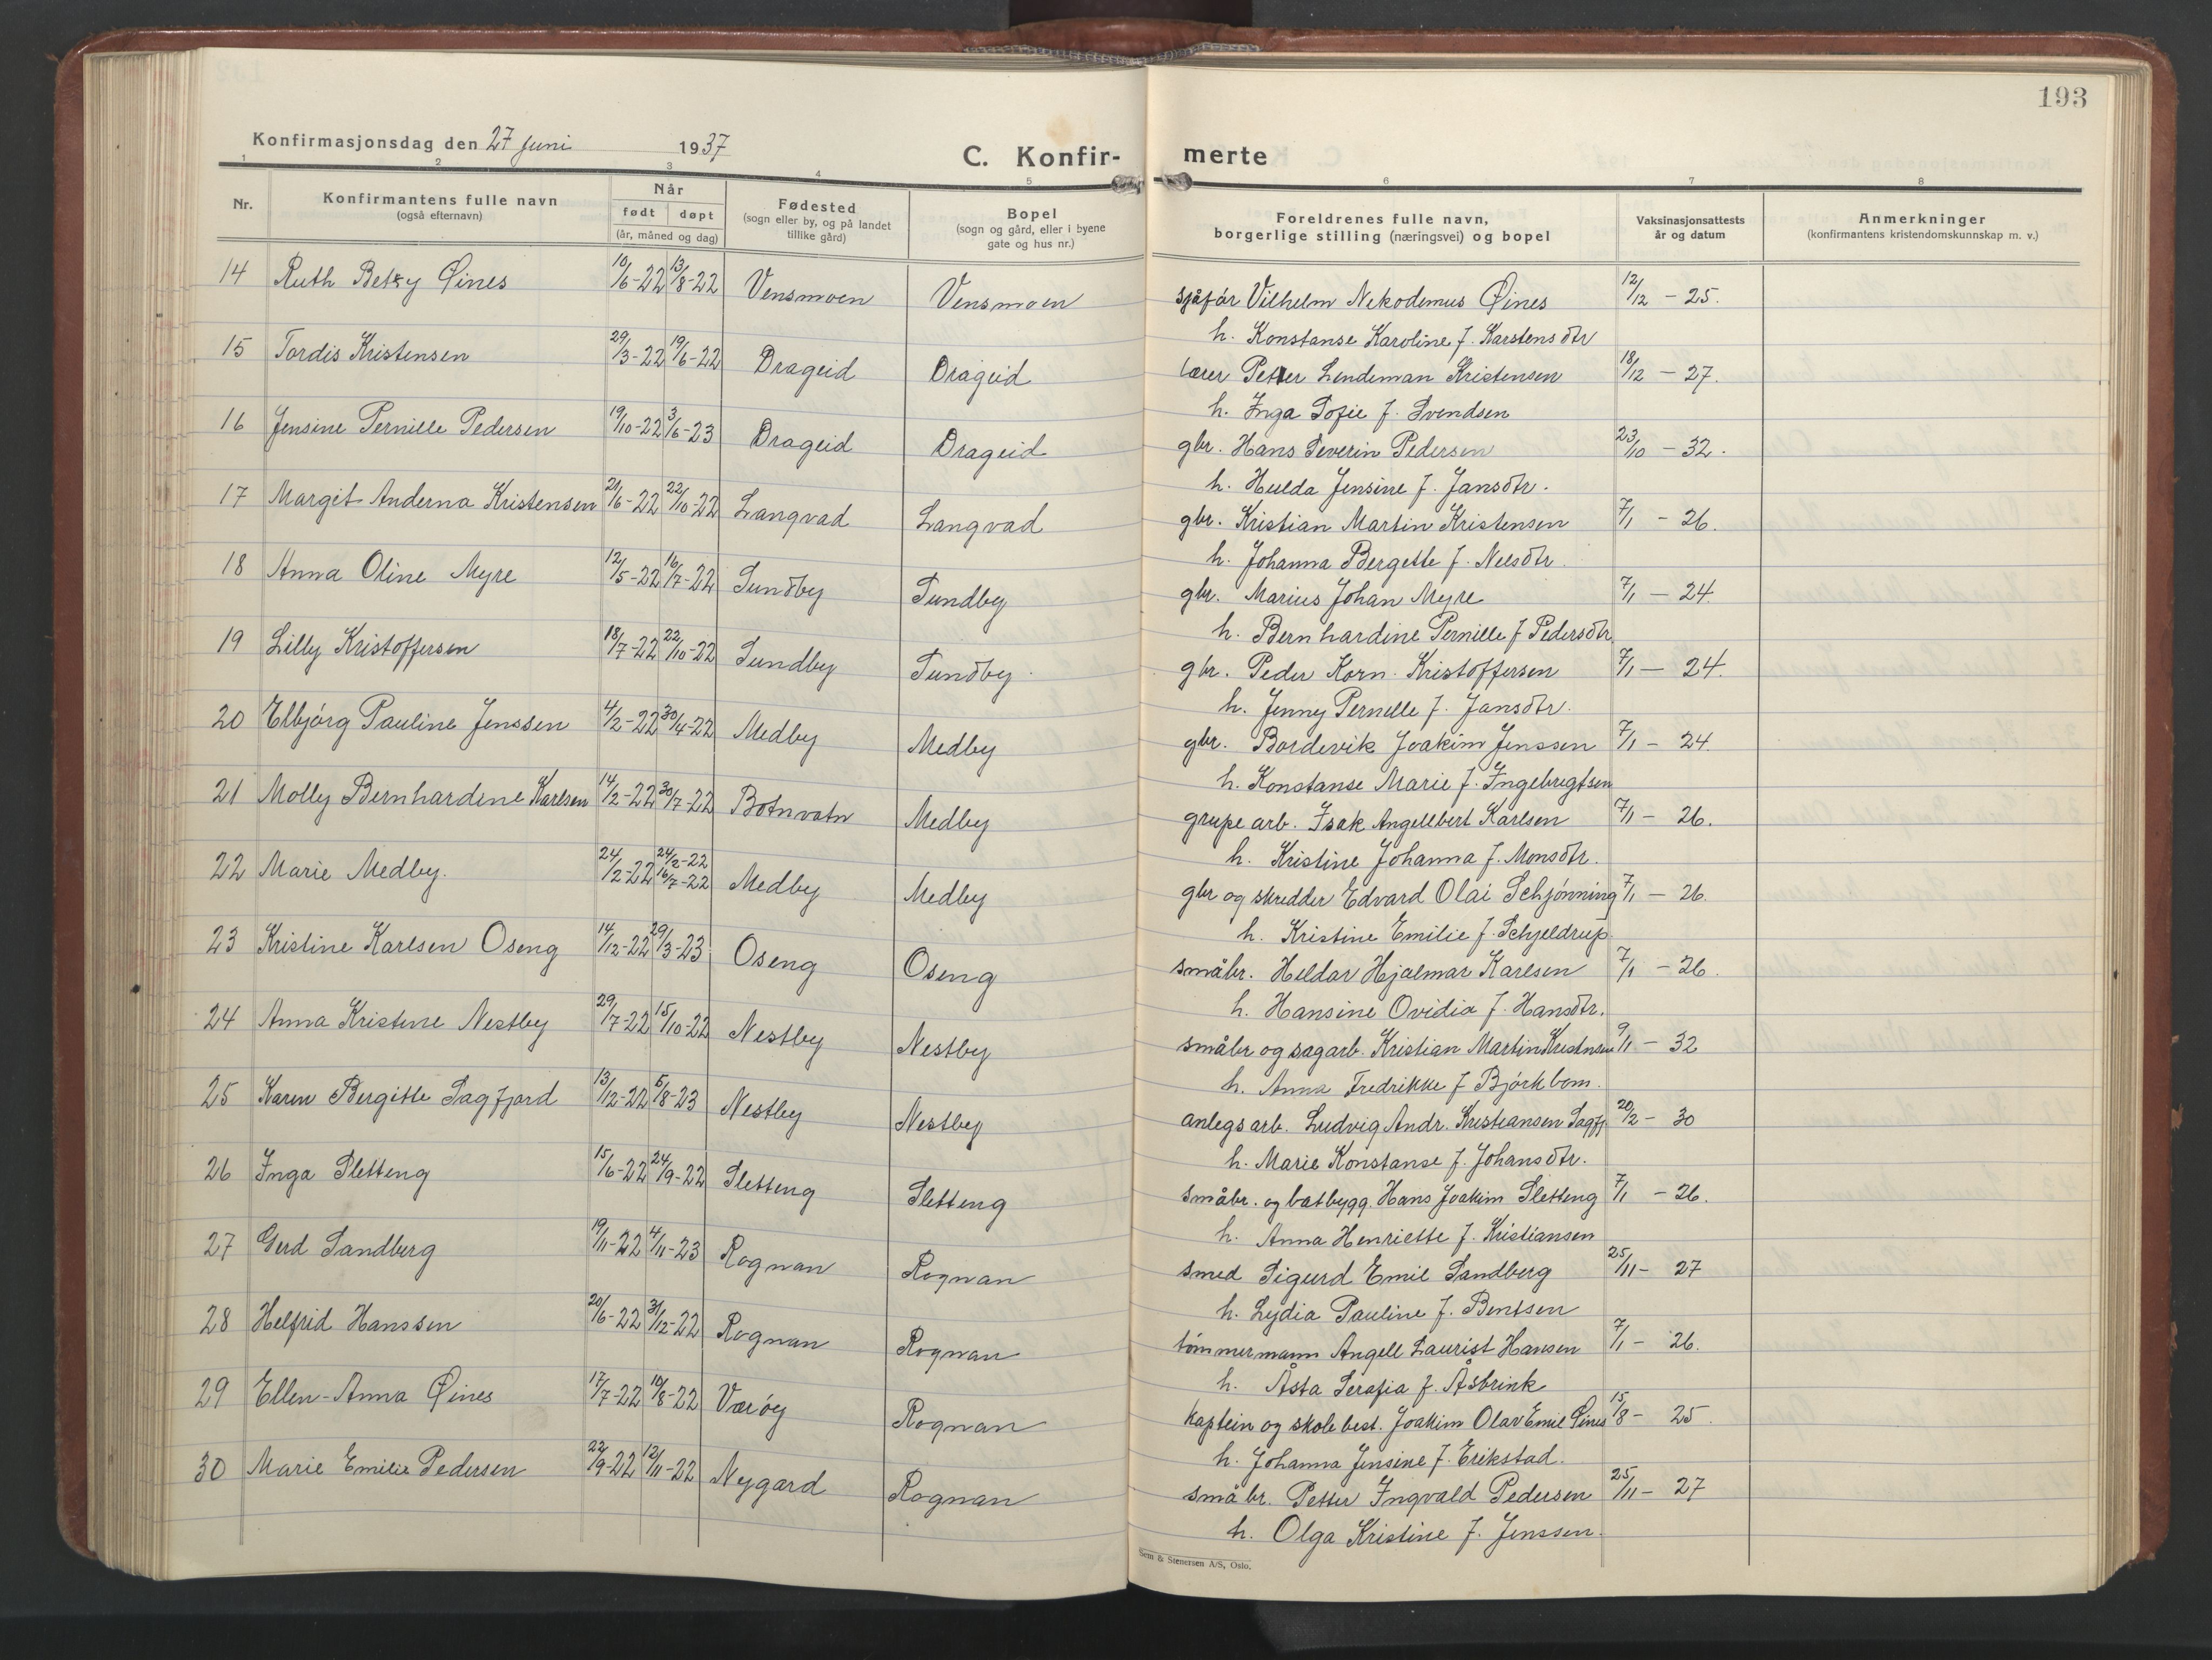 193
Konfirmasjonsdag den 27 juni 1937
C. Konfir- merte
1 2 3 4 5 6 7 8
Nr.
Konfirmantens fulle navn
(også efternavn)
Når
født døpt
(år, måned og dag)
Fødested
(sogn eller by, og på landet
tillike gård)
Bopel
(sogn og gård, eller i byene
gate og hus nr.)
Foreldrenes fulle navn,
borgerlige stilling (næringsvei) og bopel
Vaksinasjonsattests
år og datum
Anmerkninger
(konfirmantens kristendomskunnskap m. v.)
14 Ruth Betsy Øines 10/6-22 13/8-22 Vensmoen Vensmoen sjåfør Vilhelm Nekodemus Øines 12/12 - 25.
h. Konstanse Karoline f. Karstensdtr
15 Tordis Kristensen 29/3-22 19/6-22 Drageid Drageid lærer Petter Lindeman Kristensen 18/12 - 27.
h. Inga Sofie f. Svendsen
16 Jensine Pernille Pedersen 19/10-22 3/6-23 Drageid Drageid gbr. Hans Severin Pedersen 23/10 - 32.
h. Hulda Jensine f. Jansdtr.
17 Margit Anderna Kristensen 21/6-22 22/10-22 Langvad Langvad gbr. Kristian Martin Kristensen 7/1 - 26.
h. Johanna Bergette f. Nelsdtr.
18 Anna Oline Myre 12/5-22 16/7-22 Sundby Sundby gbr. Marius Johan Myre 7/1 - 24.
h. Bernhardine Pernille f Pedersdtr
19 Lilly Kristoffersen 18/7-22 22/10-22 Sundby Sundby gbr. Peder Korn. Kristoffersen 7/1 - 24.
h. Jenny Pernelle f. Jansdtr.
20 Elbjørg Pauline Jenssen 4/2-22 30/4-22 Medby Medby gbr. Bordevik Joakim Jenssen 7/1 - 24.
h. Konstanse Marie f. Ingebrigtsen
21 Molly Bernhardine Karlsen 14/2-22 30/7-22 Botnvatn Medby grupe arb. Isak Angellbert Karlsen 7/1 - 26.
h. Kristine Johanna f. Monsdtr.
22 Marie Medby. 24/2-22 24/2-22 16/7-22 Medby Medby gbr og skredder Edvard Olai Schjønning 7/1 - 26.
h. Kristine Emilie f. Schjeldrup.
23 Kristine Karlsen Oseng 14/12-22 29/3-23 Oseng Oseng småbr. Heldor Hjalmar Karlsen 7/1 - 26.
h. Hansine Ovidia f. Hansdtr.
24 Anna Kristine Nestby 29/7-22 15/10-22 Nestby Nestby småbr og sagarb. Kristian Martin Kristensen 9/1 - 32
h. Anna Fredrikke f Bjørkbom.
25 Karen Bergitte Sagfjord 13/12-22 5/8-23 Nestby Nestby anlegsarb. Ludvig Andr. Kristiansen Sagfj. 20/2 - 30
h. Marie Konstanse f. Johansdtr.
26 Inga Sletteng 15/6-22 24/9-22 Sletteng Sletteng småbr. og båtbygg. Hans Joakim Sletteng 7/1 - 26.
h. Anna Henriette f. Kristiansen
27 Gerd Sandberg 19/11-22 4/11-23 Rognan Rognan smed Sigurd Emil Sandberg 25/11 - 27
h. Lydia Pauline f. Bentsen
28 Helfrid Hanssen 20/6-22 31/12-22 Rognan Rognan tømmermann Angell Laurist Hansen 7/1 - 26.
h. Åsta Serafia f. Åsbrink
29 Ellen-Anna Øines 17/7-22 19/8-22 Værøy Rognan kaptein og skole best. Joakim Olav Emil Øines 15/8 - 25.
h. Johanna Jensine f. Erikstad.
30 Marie Emilie Pedersen 22/9-22 12/11-22 Nygard Rognan småbr. Petter Ingvald Pedersen 25/11 - 27
h. Olga Kristine f. Jenssen.
Sem & Stenersen A/S, Oslo.